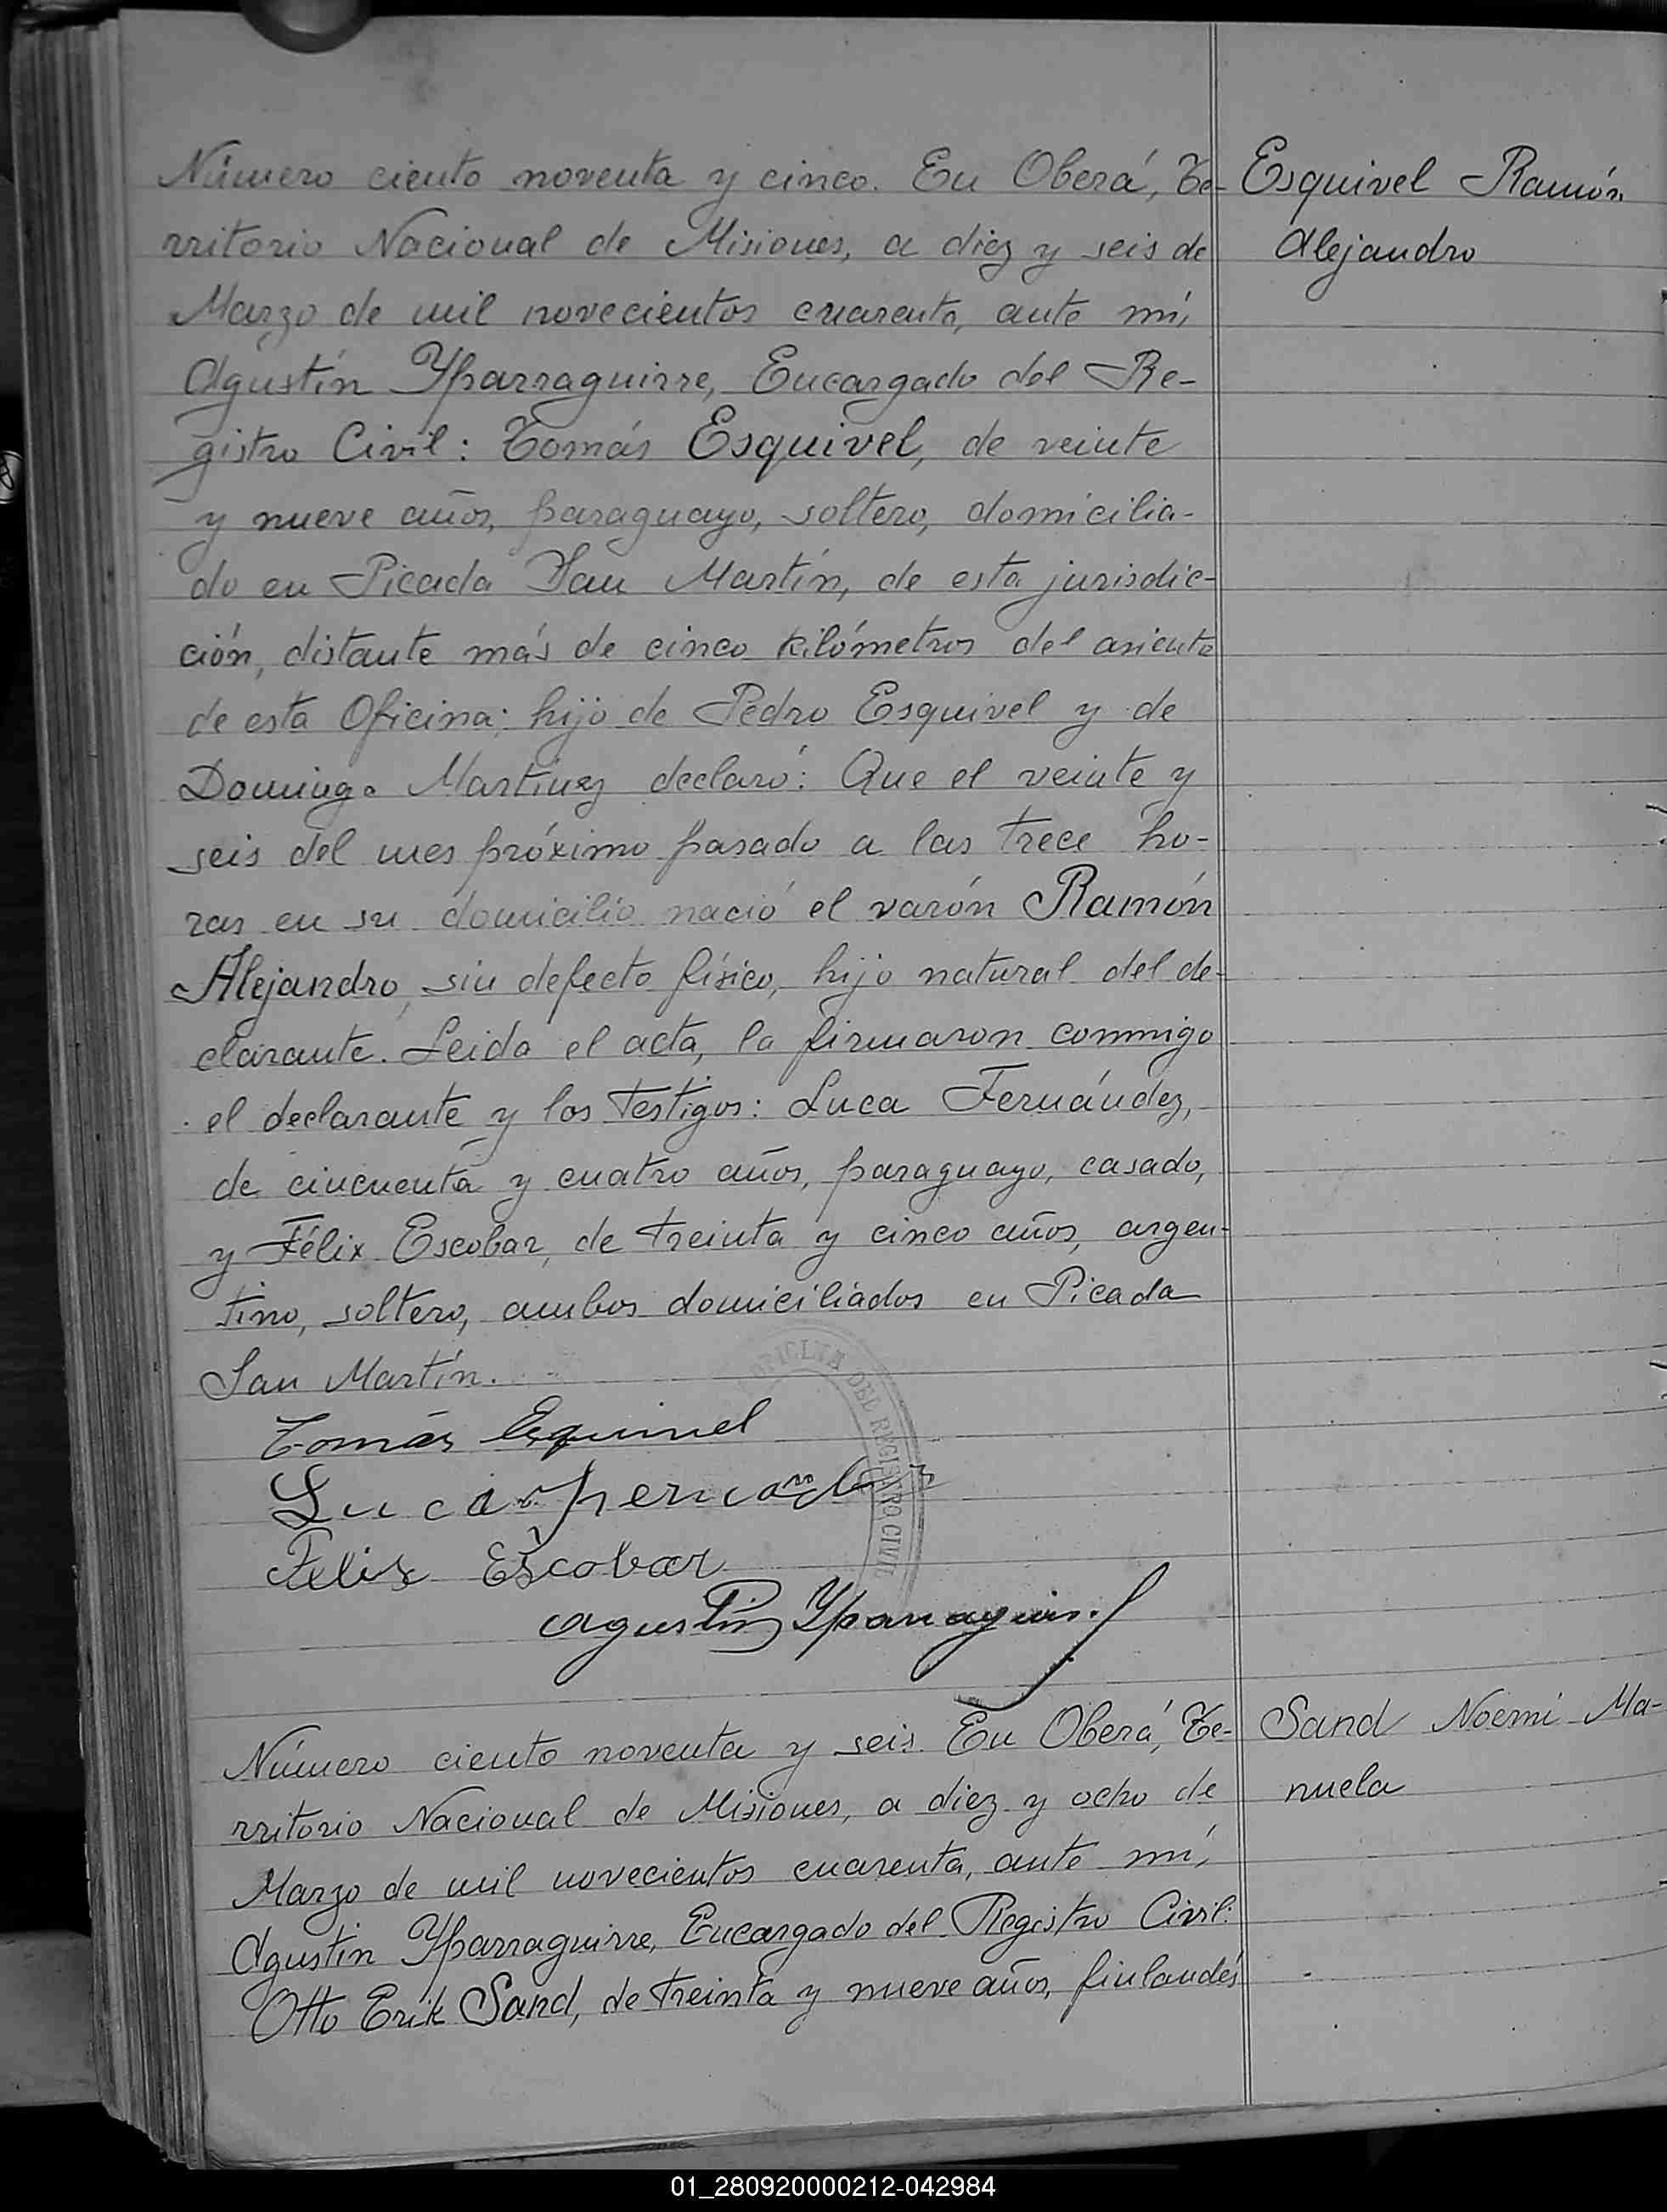 Número ciento noventa y cinco. En Oberá, Te-
Esquivel Ramón
rritorio Nacional de Misiones, a diez y seis de
Alejandro
Marzo de mil novecientos cuarenta, ante mí,
Agustín Yparraguirre, Encargado del Re-
gistro Civil: Tomás Esquivel, de veinte
y nueve años, paraguayo, soltero, domicilia-
do en Picada San Martín, de esta jurisdic-
ción, distante más de cinco kilómetros del asiento
de esta Oficina; hijo de Pedro Esquivel y de
Dominga Martínez declaró: Que el veinte y
seis del mes próximo pasado a las trece ho-
ras en su domicilio nació el varón Ramón
Alejandro, sin defecto físico, hijo natural del de-
clarante. Leida el acta, la firmaron conmigo
el declarante y los testigos: Luca Fernández,
de cincuenta y cuatro años, paraguayo, casado,
y Félix Escobar, de treinta y cinco años, argen-
tino, soltero, ambos domiciliados en Picada
San Martín.
OFICINA DEL REGISTRO CIVIL
Tomás Esquivel
Luca Fernandez
Felix Escobar
Agustín Yparraguirre
Número ciento noventa y seis. En Oberá, Te-
Sand Noemi Ma-
rritorio Nacional de Misiones, a diez y ocho de
nuela
Marzo de mil novecientos cuarenta, ante mí,
Agustín Yparraguirre, Encargado del Registro Civil:
Otto Erik Sand, de treinta y nueve años, finlandés
01_280920000212-042984